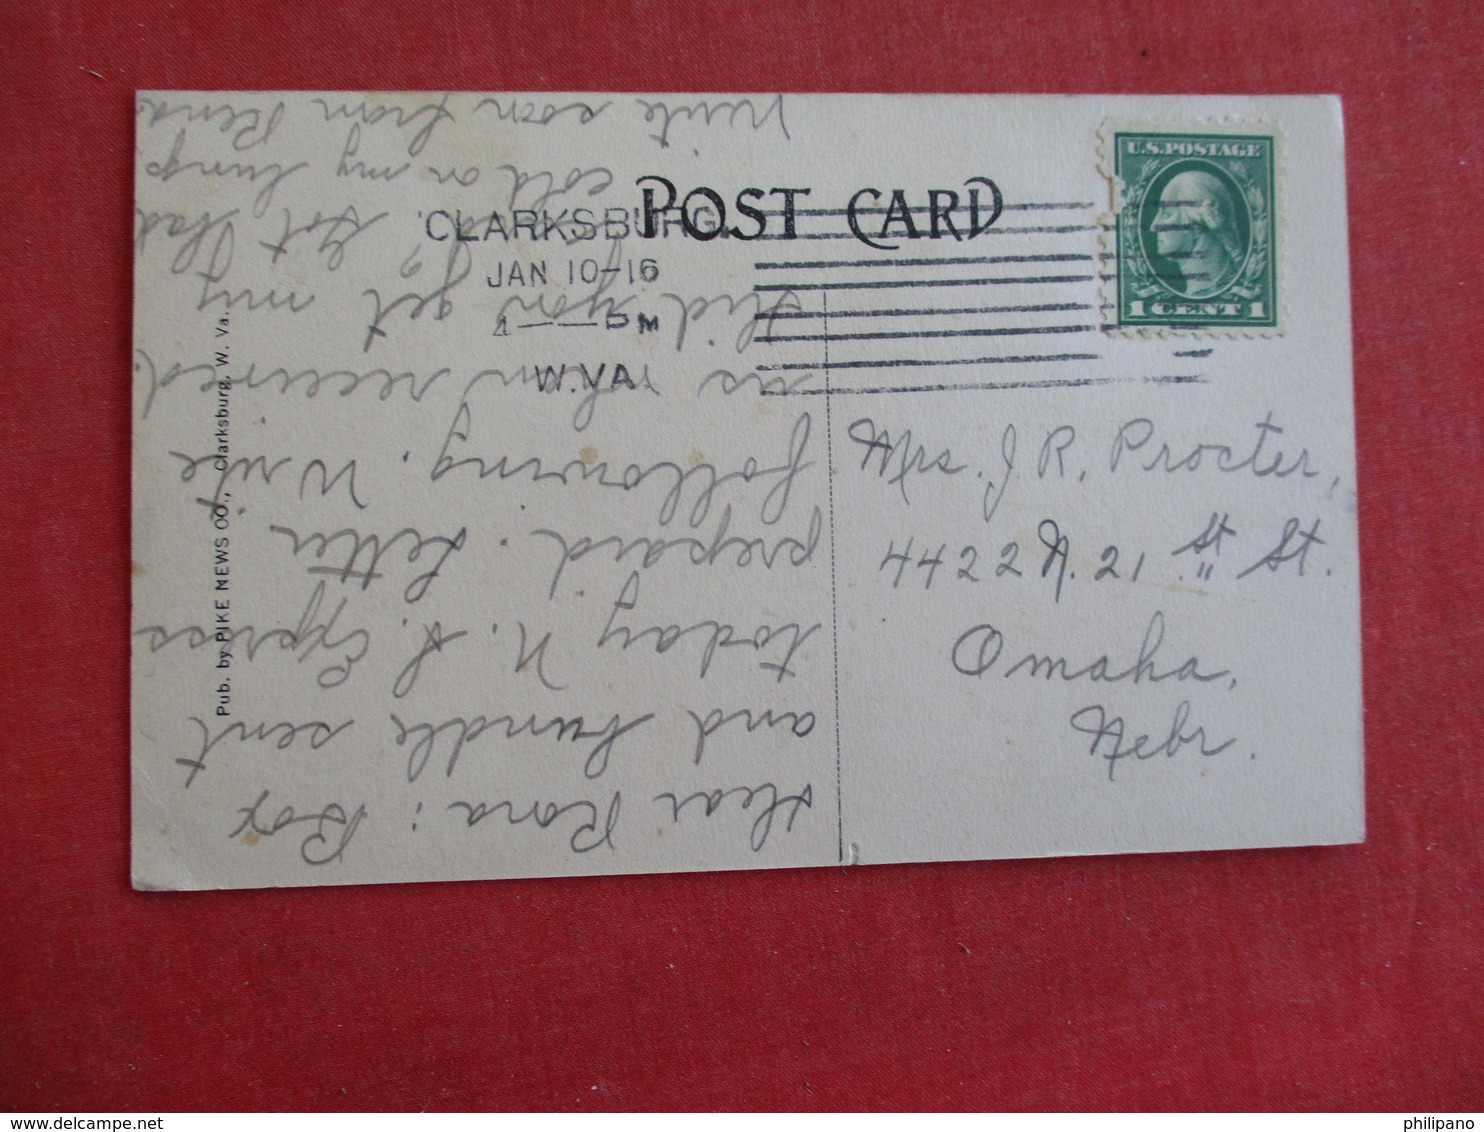 POST CARD
U.S.POSTAGE
1 CENT 1
CLARKSBURG
JAN 10-16
1 — — PM
W.VA.
Mrs. J. R. Procter,
4422 N. 21 st St.
Omaha,
Nebr.
Dear Rora: Box
and bundle sent
today N. S. Express
prepaid. Letter
following. Write
us when received.
Did you get my
Got that
cold on my lungs
Write soon from Rena
Pub. by PIKE NEWS CO., Clarksburg, W. Va.
philipano
delcampe.net